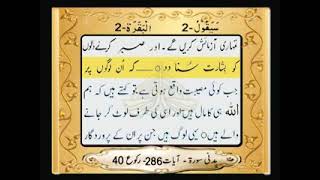 سَيَقُولُ-2 اَلْبَقَرَة-2
تمہاری آزمائش کریں گے۔ اور صبر کرنے والوں
کو بشارت سُنا دو ۝ کہ اُن لوگوں پر
جب کوئی مصیبت واقع ہوتی ہے تو کہتے ہیں کہ ہم
اللہ ہی کا مال ہیں اور اسی کی طرف لوٹ کر جانے
والے ہیں ۝ یہی لوگ ہیں جن پر اُن کے پروردگار
مدنی سورۃ - آیات-286 رکوع 40